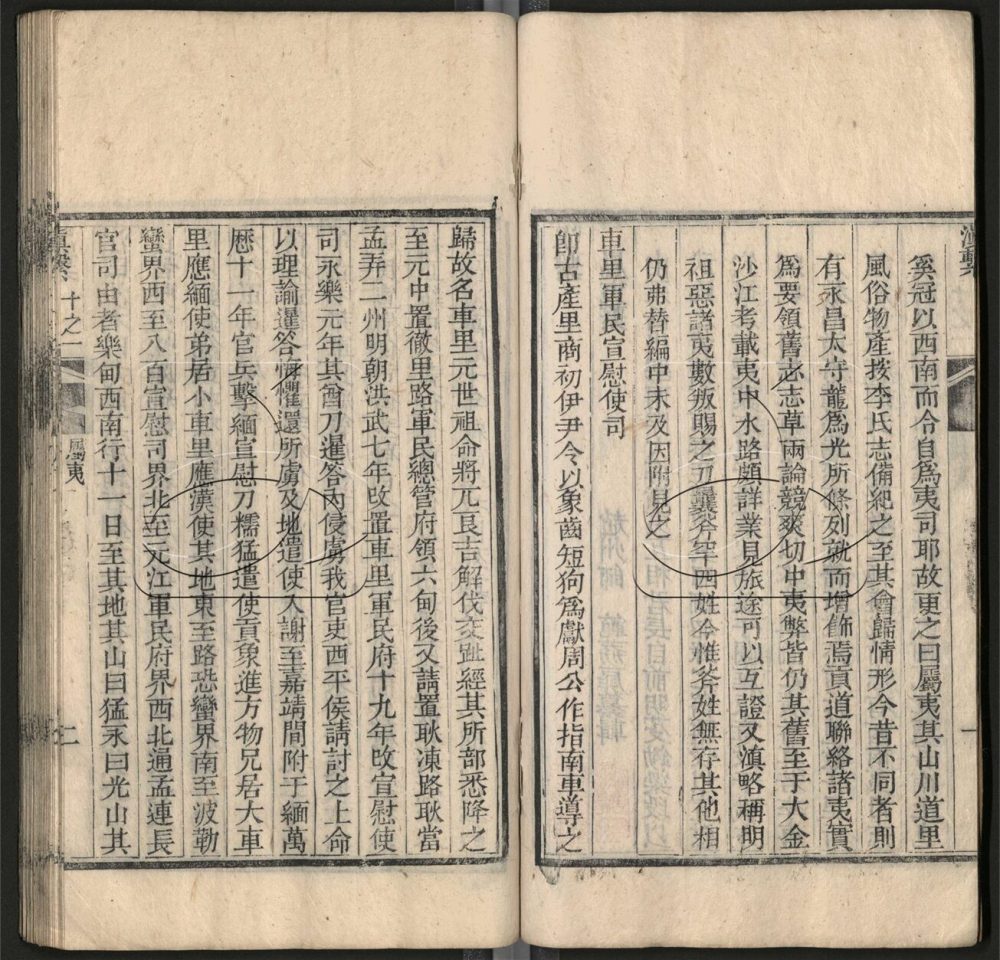 滇繫
奚冠以西南而今自爲夷司耶故更之曰屬夷其山川道里
風俗物產按李氏志備紀之至其會歸情形今昔不同者則
有永昌太守龍爲光所條列就而增飾焉貢道聯絡諸夷實
爲要領舊必志草兩論競爽切中夷弊皆仍其舊至于大金
沙江考載夷中水路頗詳業見旅途可以互證又滇略稱明
祖惡諸夷數叛賜之刀㬮斧罕四姓今惟斧姓無存其他相
仍弗替編中未及因附見之
車里軍民宣慰使司
即古產里商初伊尹令以象齒短狗爲獻周公作指南車導之
一
歸故名車里元世祖命將兀艮吉解伐交趾經其所部悉降之
至元中置徹里路軍民總管府領六甸後又請置耿凍路耿當
孟弄二州明朝洪武七年改置車里軍民府十九年改宣慰使
司永樂元年其酋刀暹答內侵虜我官吏西平侯請討之上命
以理諭暹答悔懼還所虜及地遣使入謝至嘉靖間附于緬萬
歷十一年官兵擊緬宣慰刀糯猛遣使貢象進方物兄居大車
里應緬使弟居小車里應漢使其地東至路恐蠻界南至波勒
蠻界西至八百宣慰司界北至元江軍民府界西北通孟連長
官司由者樂甸西南行十一日至其地其山曰猛永曰光山其
滇繫 十之一 屬夷 二